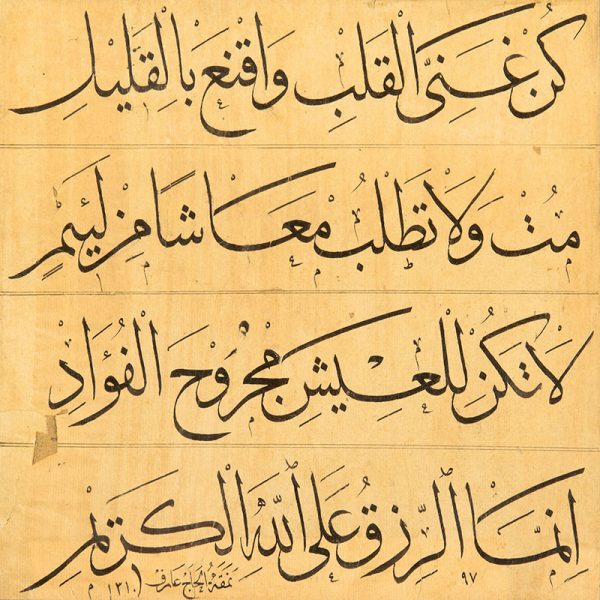 كُنْ غَنِيَّ الْقَلْبِ وَاقْنَعْ بِالْقَلِيلِ
مُتْ وَلَا تَطْلُبْ مَعَاشًا مِنْ لَئِيمٍ
لَا تَكُنْ لِلْعَيْشِ مَجْرُوحَ الْفُؤَادِ
اِنَّمَا الرِّزْقُ عَلَى اللّٰهِ الْكَرِيْمِ
٩٧
نمقه الحاج عارف ١٣١٠